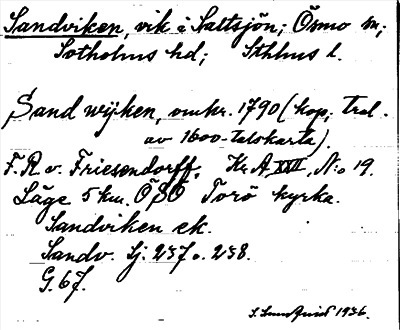 Sandviken, vik i Saltsjön; Ösmo sn;
Sotholms hd; Sthlms l.
Sand wijken, omkr. 1790 (kop; trol.
av 1600-talskarta).
F. R. v. Friesendorff. Kr. A. XVII, N:o 19.
Läge 5 km. ÖSÖ Torö kyrka.
Sandviken ek.
Sandv. Sj. 237 o. 238.
G. 67.
1936.